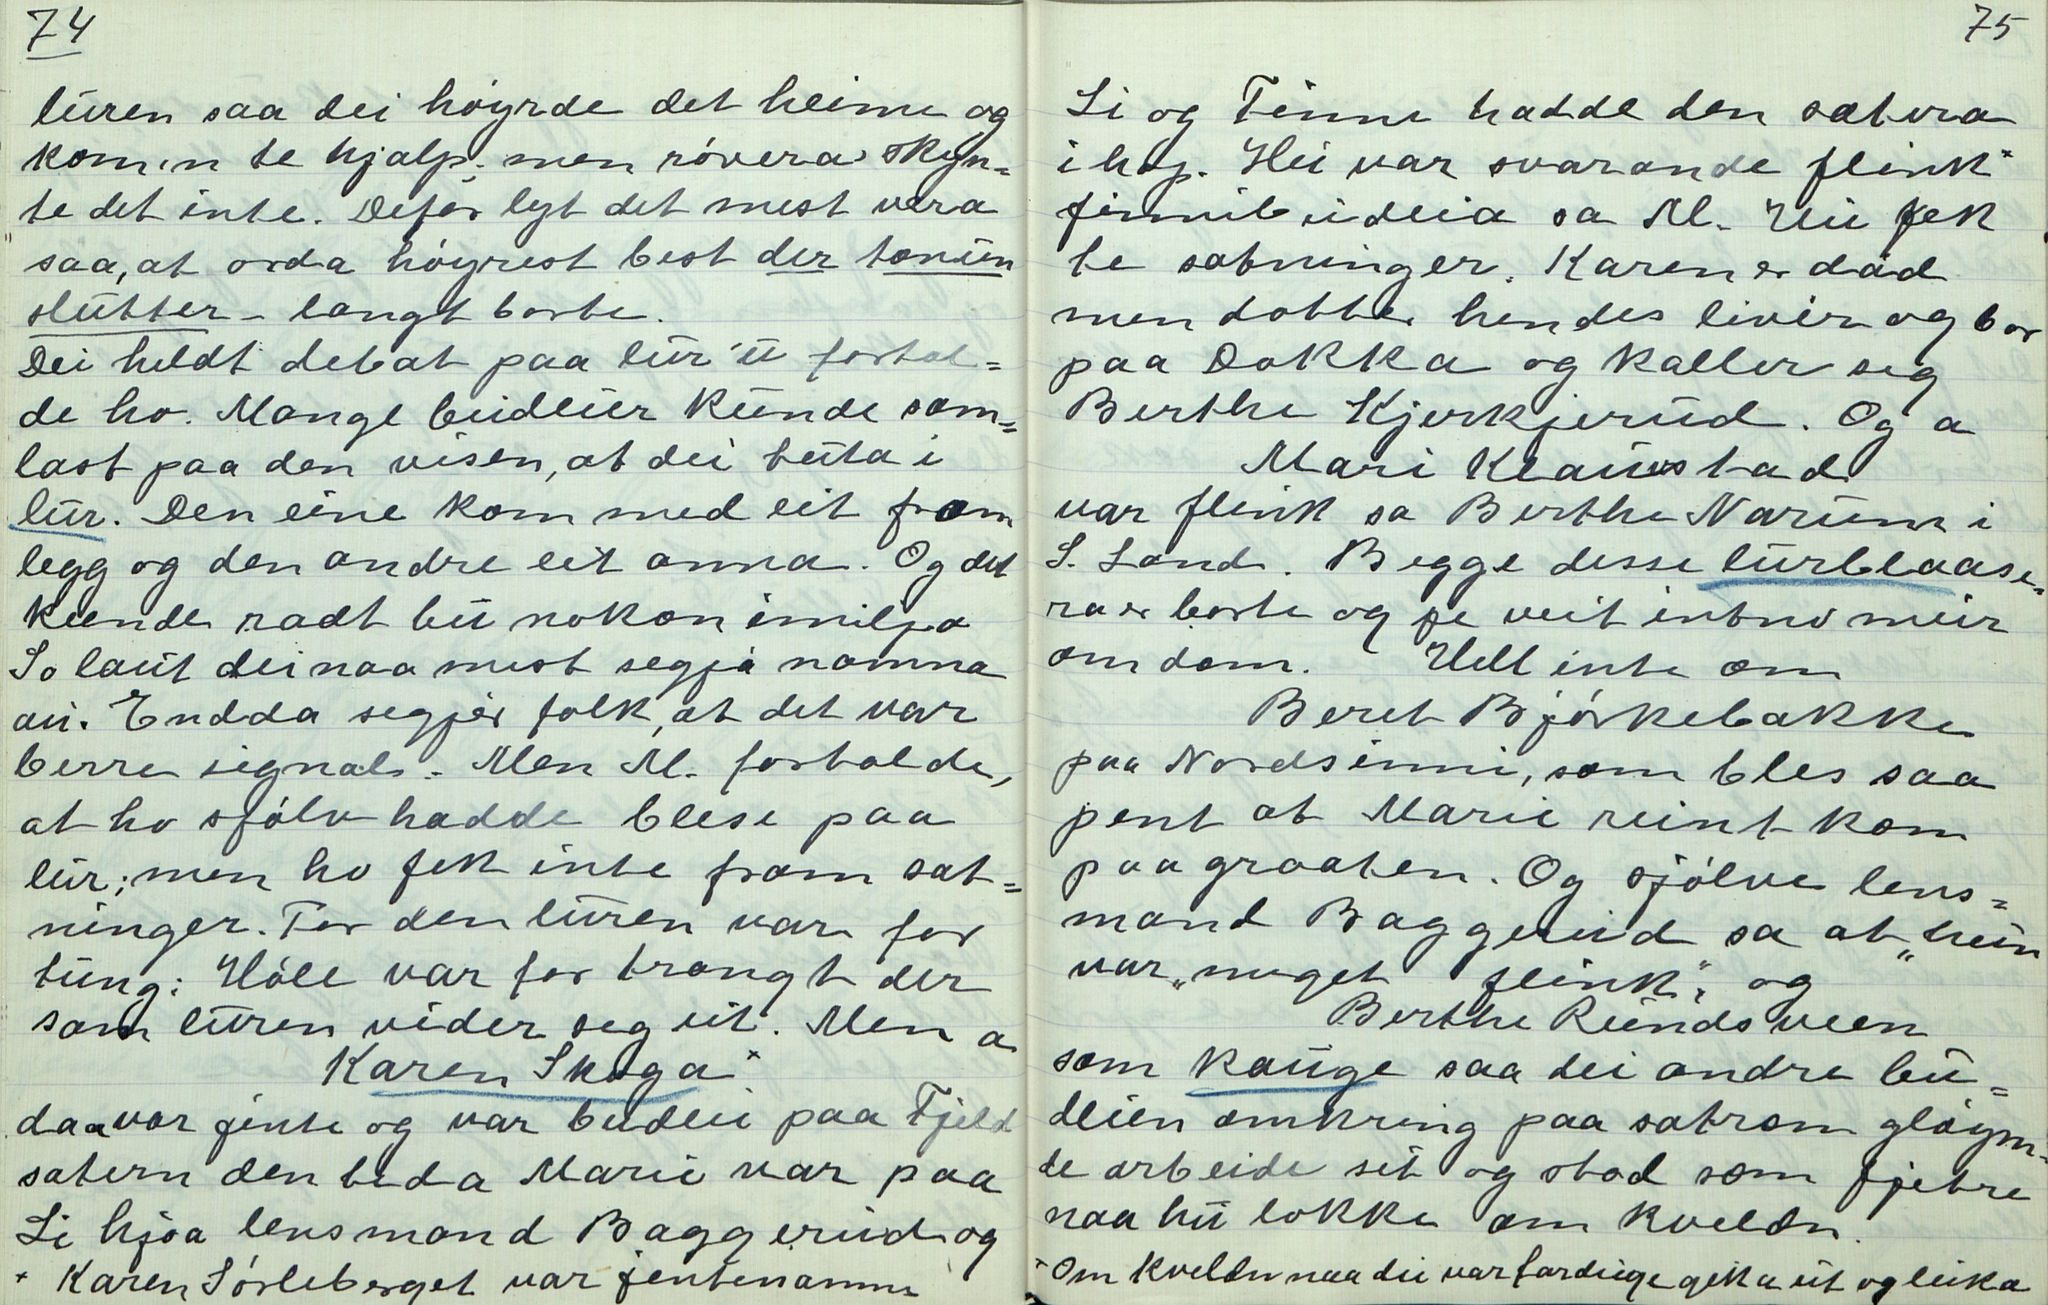 74
luren saa dei høyrde det heime og
kom'n te hjalp; men røvera skyn=
te det inte. Defor lyt det mest vera
saa, at orda høyrest best der tonun
slutter - langt borte.
Dei heldt debat paa lur'u fortal=
de ho. Mange budeier kunde sam=
last paa den visen, at dei tuta i
lur. Den eine kom med eit fram
legg og den andre eit anna. Og det
kunde radt bu nokon imilja
So laut dei naa mest segja namna
au. Endda segjer folk, at det var
berre signals. Men M. fortalde,
at ho sjølv hadde blese paa
lur; men ho fek inte fram sat=
ninger. For den luren var for
tung: Høle var for trongt der
som luren vider seg ut. Men a
Karen Skoga x
daa var jente og var budeie paa Fjeld
setern den tida Marie var paa
Li hjaa lensmand Baggerud og
x Karen Sørleberget var jentenamne
75
Li og Finne hadde den sætra
i hop. Hei var svarande flink x
finnibudeia sa M. Hu fek
te satninger. Karen er død
men dotter hendes liver og bor
paa Dokka og kaller seg
Berthe Kjerkjerud. Og a
Mari Klauvstad
var flink sa Berthe Narum i
S. Land. Begge desse lurblaase
ra er borte og je veit intno meir
om dom. Hell inte om
Beret Bjørkebakke
paa Nordsinni, som bles saa
pent at Marie reint kom
paa graaten. Og sjølve lens=
mand Baggerud sa at „hun
var „meget flink", og
Berthe Rundsveen
som kauge saa dei andre bu=
deien omkring paa satrom gløym=
de arbeide sit og stod som fjetre
naa hu lokke om kveldn.
x Om kveldn naa dei var fardige gikk a ut og leika